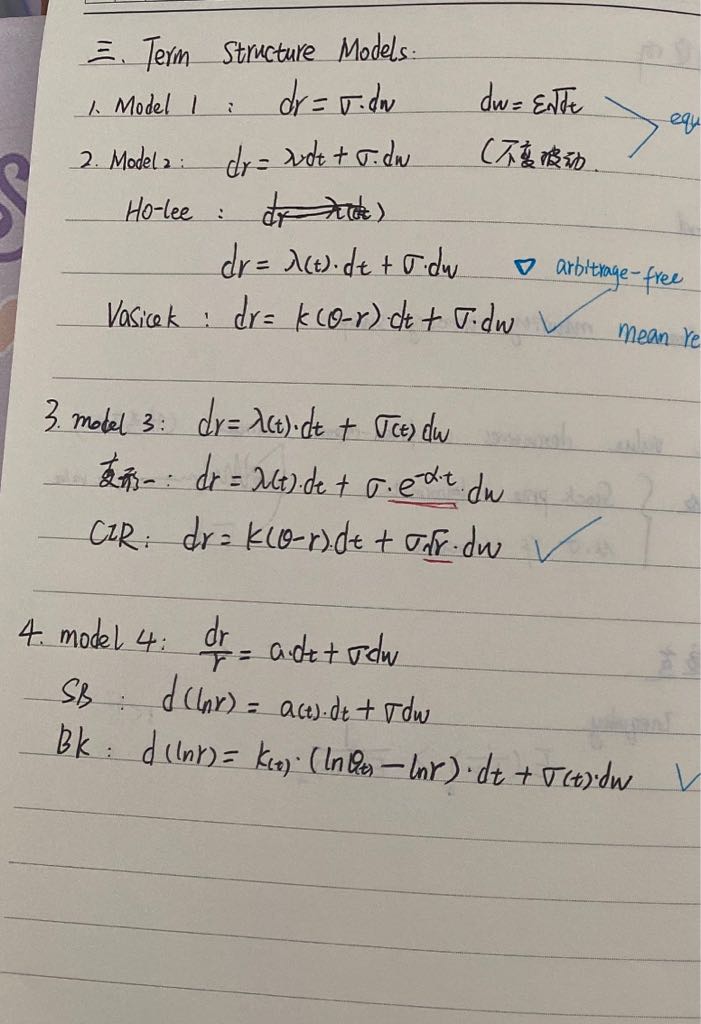 三. Term Structure Models:
1. Model 1 : dr = σ·dw dw = ε√dt equ
2. Model 2 : dr = λdt + σ·dw (不变波动
Ho-lee :
dr = λ(t)·dt + σ·dw ▽ arbitrage-free
Vasicek : dr = k(θ-r)·dt + σ·dw ✓ mean re
3. model 3: dr = λ(t)·dt + σ(t)dw
变形一: dr = λ(t)·dt + σ·e^-α·t·dw
CIR: dr = k(θ-r)·dt + σ√r·dw ✓
4. model 4: dr/r = a·dt + σdw
SB : d(lnr) = a(t)·dt + σdw
BK : d(lnr) = k(t)·(lnθ(t) - lnr)·dt + σ(t)·dw ✓